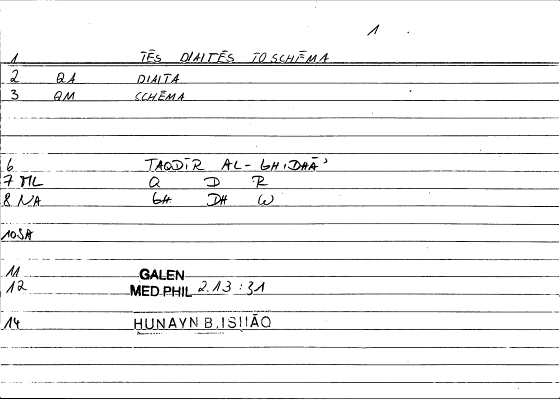 1
1 TĒS DIAITĒS TO SCHĒMA
2 QA DIAITA
3 QM SCHĒMA
6 TAQDĪR AL-GHIDHĀʾ
7 ML Q D R
8 NA GH DH W
10 SA
11 GALEN
12 MED PHIL 2.13:31
14 HUNAYN B. ISHĀQ